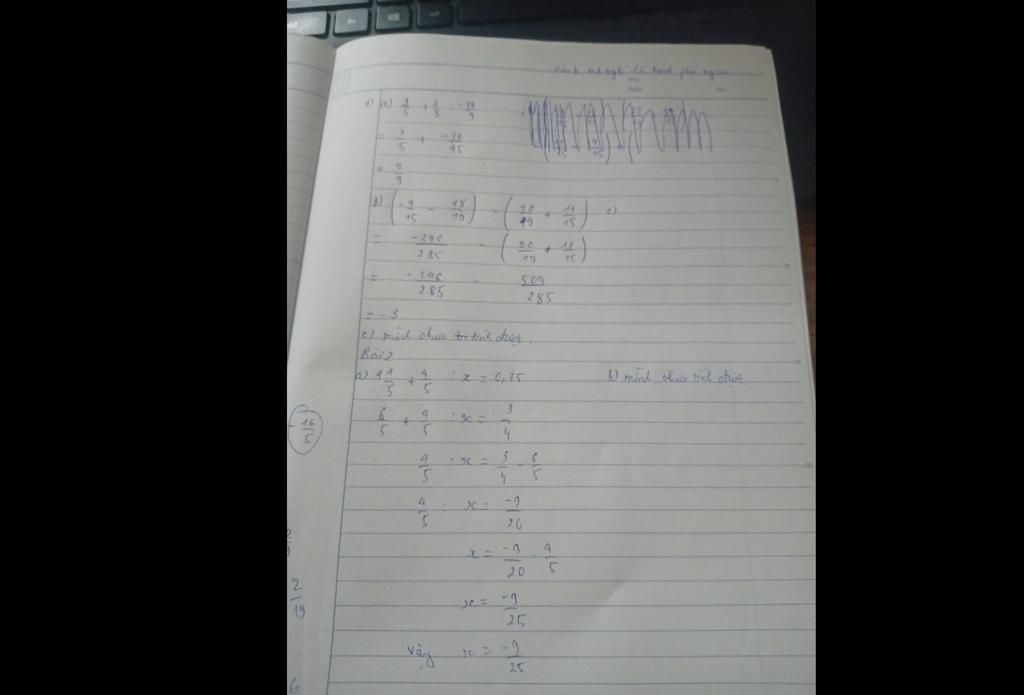 1) a) 3/5 + 2/5 . -17/9
= 3/5 + -17/45
= 2/9
b) (-9/15 - 18/19) - (20/19 + 11/15) c)
= -346/285 - (20/19 + 11/15)
= -346/285 - 509/285
= -3
c) mình chưa tính được.
Bài 2
a) 1 1/5 + 4/5 : x = 0,75 b) mình chưa tính được
6/5 + 4/5 : x = 3/4
4/5 : x = 3/4 - 6/5
4/5 : x = -9/20
x = -9/20 . 4/5
x = -9/25
Vậy x = -9/25
-16/5
2/19
6